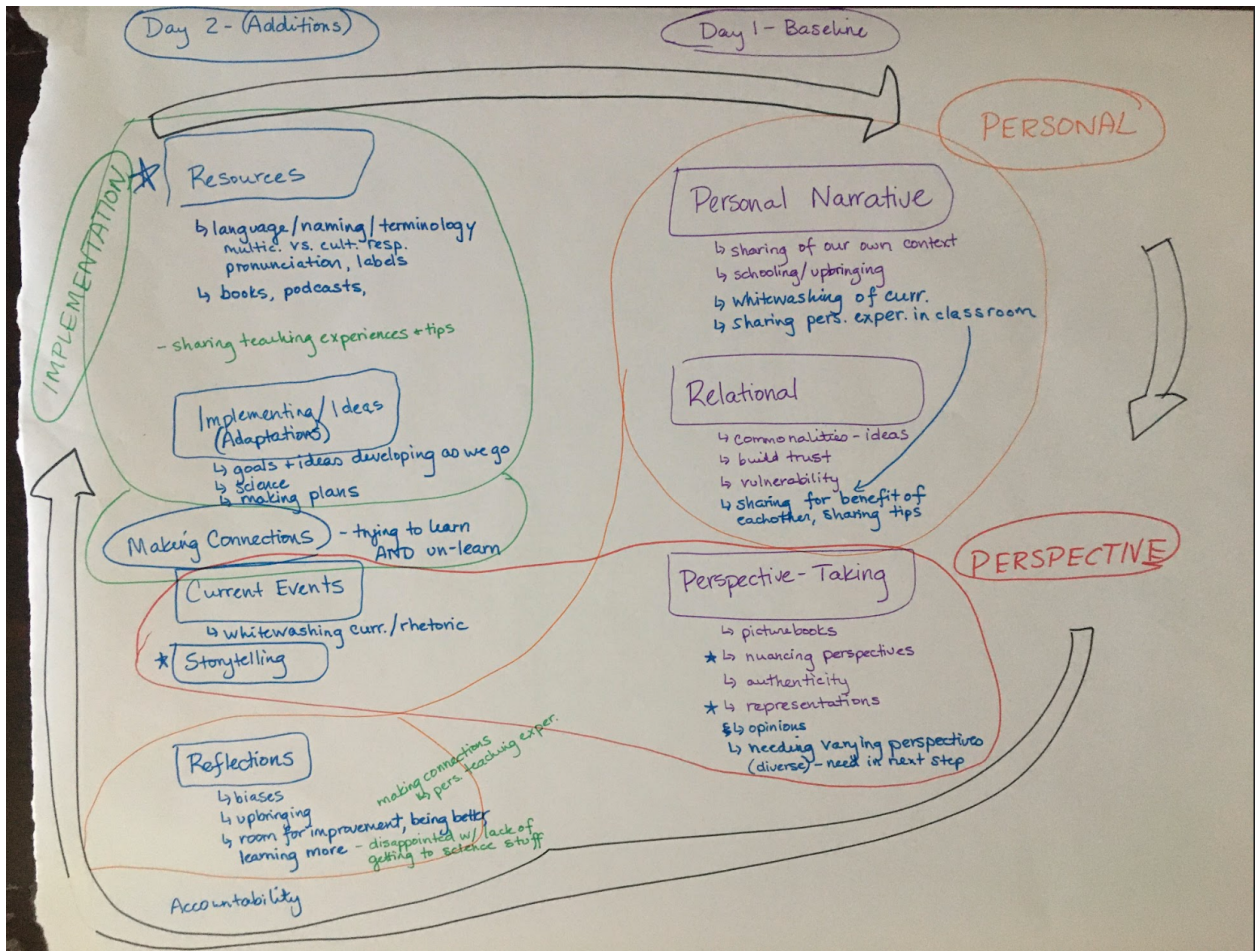 Day 2 - (Additions)
Day 1 - Baseline
PERSONAL
IMPLEMENTATION
Resources
↳ language/naming/terminology
multic. vs. cult. resp.
pronunciation, labels
↳ books, podcasts,
- sharing teaching experiences + tips
Implementing/Ideas
(Adaptations)
↳ goals + ideas developing as we go
↳ science
↳ making plans
Making Connections
- trying to learn
AND un-learn
Current Events
↳ whitewashing curr./rhetoric
Storytelling
Reflections
↳ biases
↳ upbringing
↳ room for improvement, being better,
learning more
- disappointed w/ lack of
getting to science stuff
making connections
↳ pers. teaching exper.
Accountability
Personal Narrative
↳ sharing of our own context
↳ schooling/upbringing
↳ whitewashing of curr.
↳ sharing pers. exper. in classroom
Relational
↳ commonalities - ideas
↳ build trust
↳ vulnerability
↳ sharing for benefit of
eachother, sharing tips
PERSPECTIVE
Perspective-Taking
↳ picturebooks
↳ nuancing perspectives
↳ authenticity
↳ representations
↳ opinions
↳ needing varying perspectives
(diverse) - need in next step